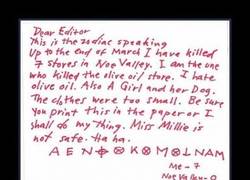 Dear Editor
This is the zodiac speaking
Up to the end of March I have killed
7 stores in Noe Valley. I am the one
who killed the olive oil store. I hate
olive oil. Also A Girl and her Dog.
The clothes were too small. Be sure
you print this in the paper or I
shall do my thing. Miss Millie is
not safe. Ha ha.
A E N ⌖ ⊗ K ⊗ M ⊗ ⅃ N A M
Me - 7
Noe Valley - 0